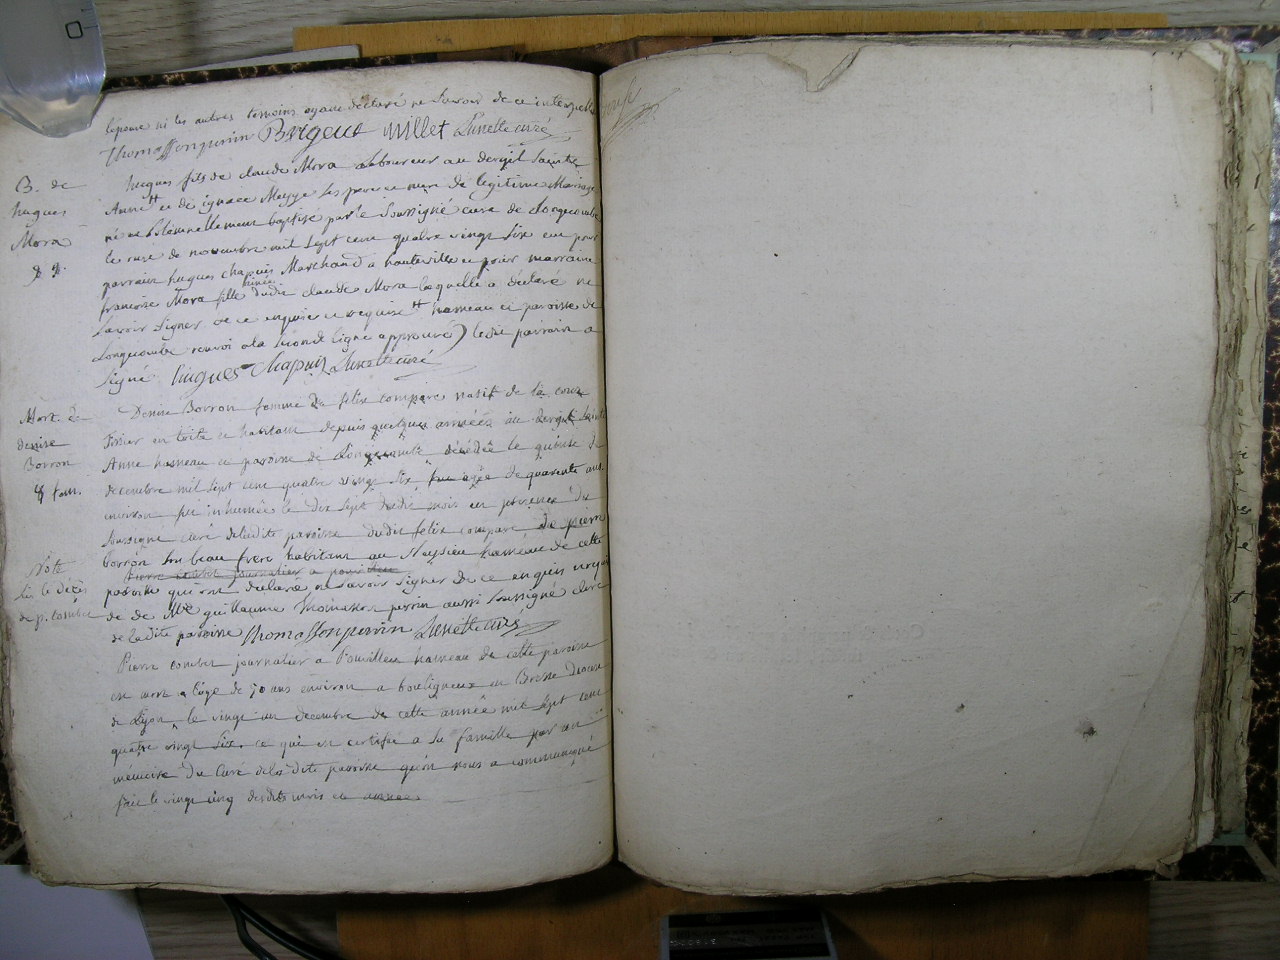 lepouse ni les autres temoins ayant déclaré ne savoir de ce interpellé
Thomassonperrin Brigeut millet Lunette curé
B. de
hugues
Mora
hugues fils de claude Mora laboureur au dergit Sainte
Anne et de ignace Meyge les pere et mere de legitime Mariage
né et solennellement baptisé par le soussigné curé de Longecombe
le onze de novembre mil sept cent quatre vingt six eut pour
parrain hugues chapuis Marchand a hauteville et pour marraine
francoise Mora fille dudit claude Mora laquelle a déclaré ne
savoir signer de ce enquise et requise hameau et paroisse de
Longecombe renvoi a la seconde ligne approuvé) ledit parrain a
signé hugues Chapuis Lunette curé
Mort de
denise
Borron
fem.
Denise Borron femme de felix compare natif de la cour
en toite et habitant depuis quelques années au dergit Sainte
Anne hameau et paroisse de Longecombe décédée le quinze de
decembre mil sept cent quatre vingt six agée de quarente ans
environ fut inhumée le dix sept dudit mois en presence du
soussigné curé de ladite paroisse dudit felix compare de pierre
borron son beau frere habitant au Neysieu hameau de cette
Pierre combet journalier a pouvilleu
paroisse qui ont déclaré ne savoir signer de ce enquis
de de Me guillaume Thomasson perrin aussi soussigné clerc
de ladite paroisse Thomassonperrin Lunette curé
Note
sur le décès
de p. combet
Pierre combet journalier a Pouvilleu hameau de cette paroisse
est mort a l'age de 70 ans environ a bouligneux en Bresse diocese
de Lyon le vingt un decembre de cette année mil sept cent
quatre vingt six. ce qui est certifié a sa famille par un
mémoire du curé de la dite paroisse qu'on nous a communiqué
fait le vingt cinq desdits mois et année